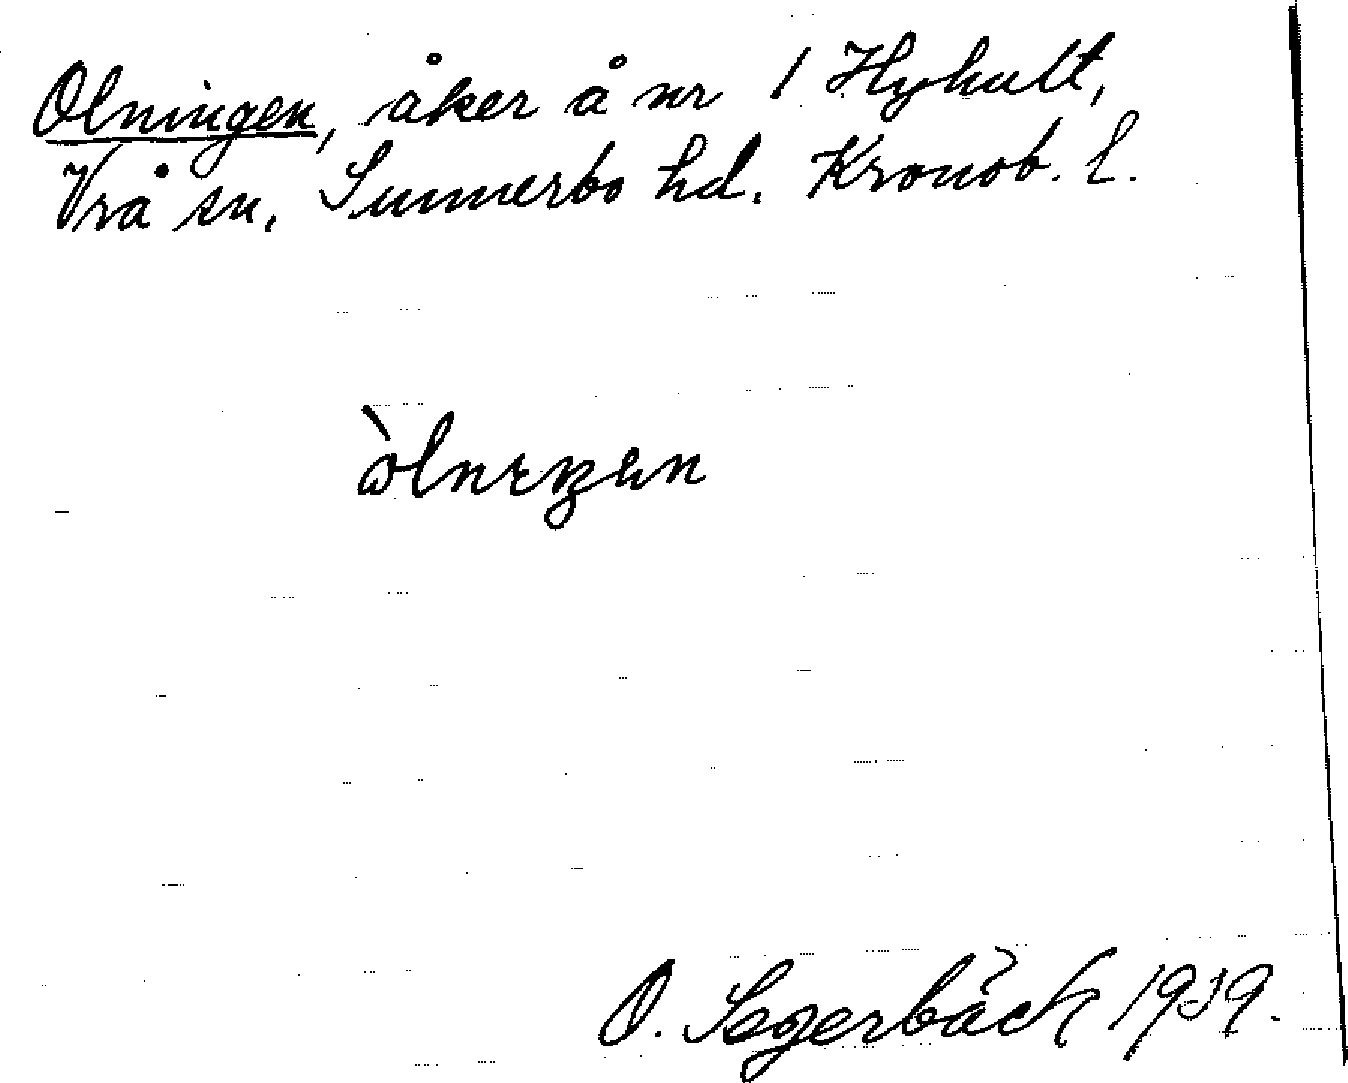 Olningen, åker å nr 1 Hyhult,
Vrå sn. Sunnerbo hd. Kronob. l.
O. Segerbäck 1939.